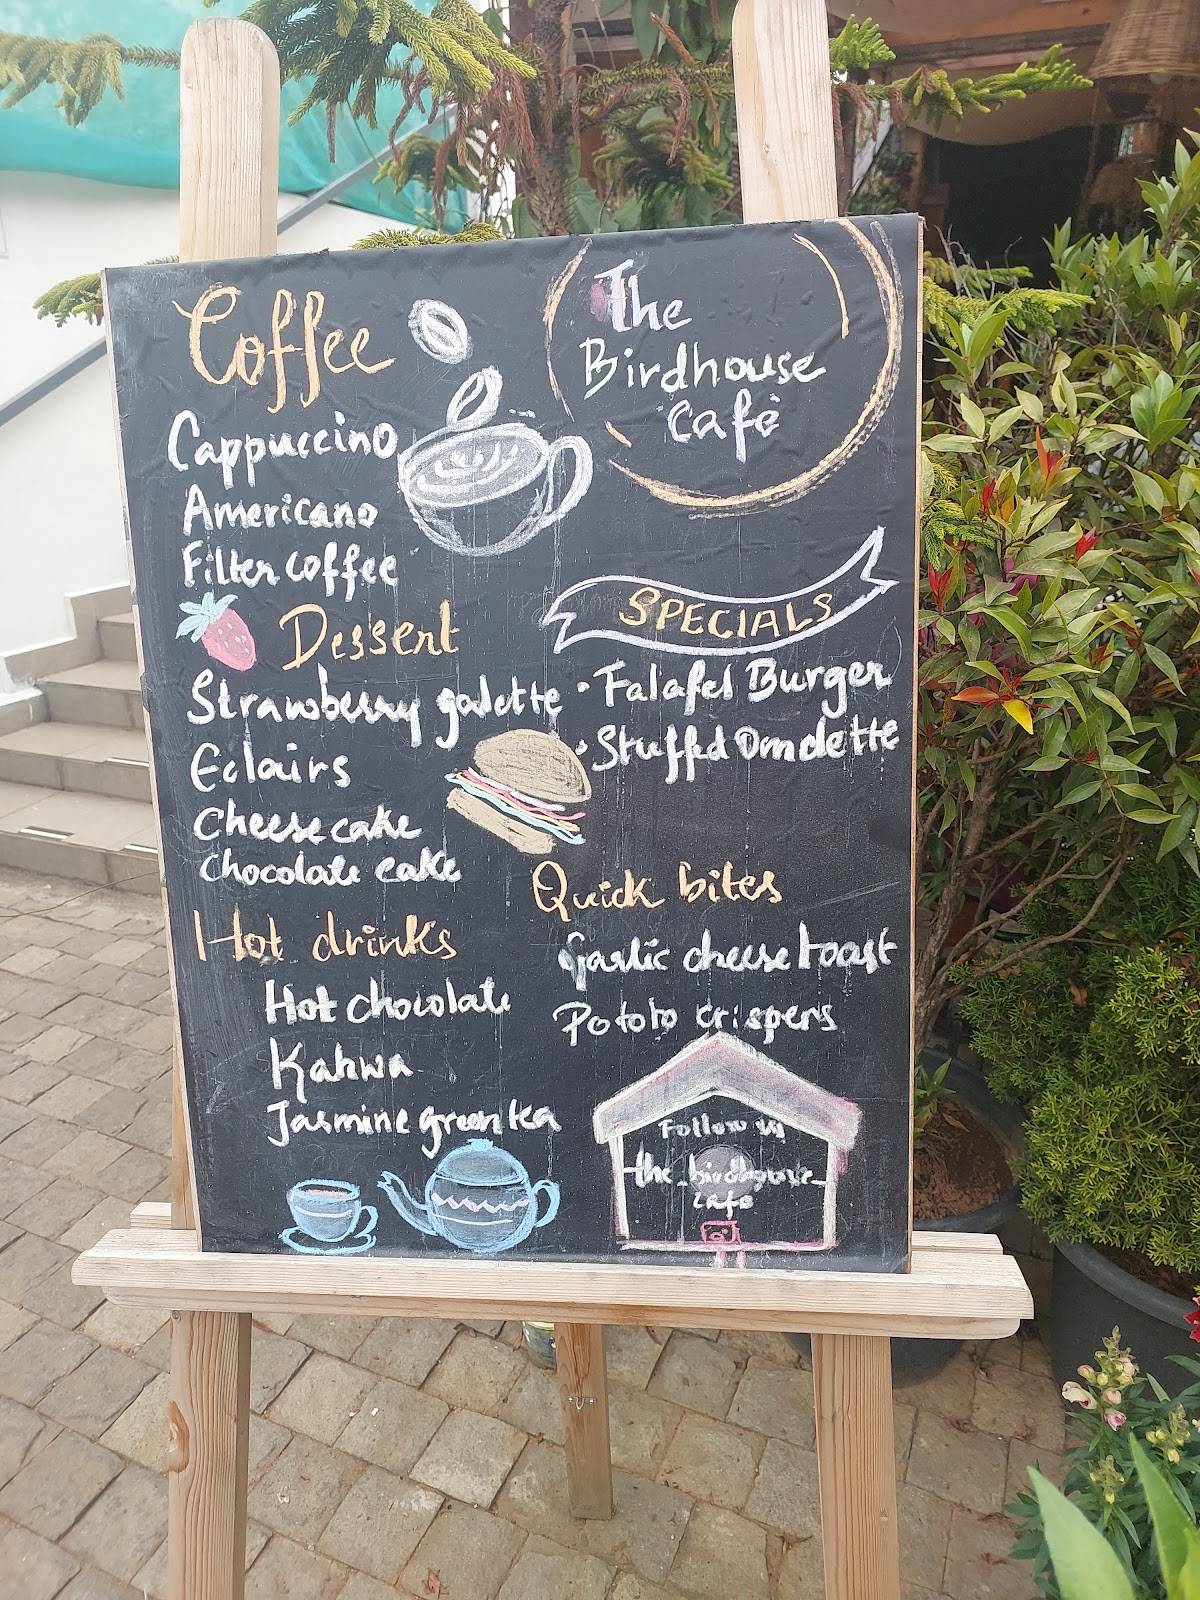 The
Birdhouse
Cafè
Coffee
Cappuccino
Americano
Filter coffee
Dessert
Strawberry galette
Eclairs
Cheese cake
Chocolate cake
Hot drinks
Hot chocolate
Kahwa
Jasmine green tea
SPECIALS
• Falafel Burger
• Stuffed Omelette
Quick bites
Garlic cheese toast
Pototo crispers
Follow us
the_birdhouse_
cafe